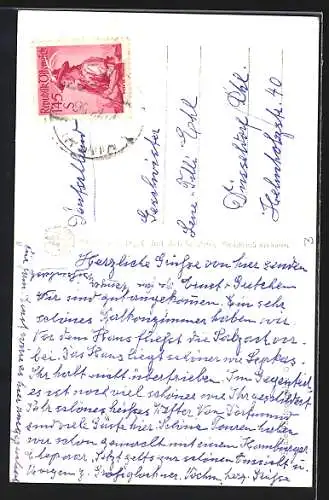 REPUBLIK ÖSTERREICH
1.45 S
Deutschland
Geschwister
Lene Tilli Erkl
Düsseldorf Obl.
Helmholtzstr. 40
Herzliche Grüße von hier senden
Ernst u Gretchen
Wir sind gut angekommen. Ein sehr
schönes Balkonzimmer haben wir.
Vor dem Haus fließt die Salzach vor
bei. Das Haus liegt schöner wie
Ihr habt nicht übertrieben. Im Gegenteil
es ist noch viel schöner wie Ihr geschildert
Sehr schönes heißes Wetter. Von
sind viele Gäste hier. Schöne Touren haben
wir schon gemacht mit einem Hamburger
Ehepaar. Jetzt geht's zur schönen Aussicht u.
morgen z. Großglockner. herz. Grüße